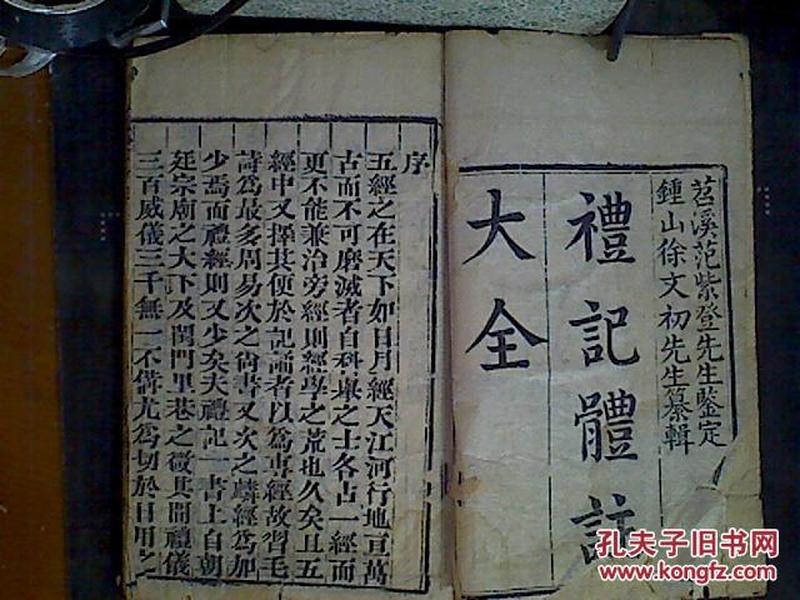 苕溪范紫登先生鑒定
鍾山徐文初先生纂輯
禮記體註
大全
序
五經之在天下如日月經天江河行地亘萬
古而不可磨滅者自科舉之士各占一經而
更不能兼治旁經則經學之荒也久矣且五
經中又擇其便於記誦者以為專經故習毛
詩為最多周易次之尙書又次之麟經為加
少焉而禮經則又少矣夫禮記一書上自朝
廷宗廟之大下及閨門里巷之微其間禮儀
三百威儀三千無一不備尤為切於日用之
孔夫子旧书网
www.kongfz.com